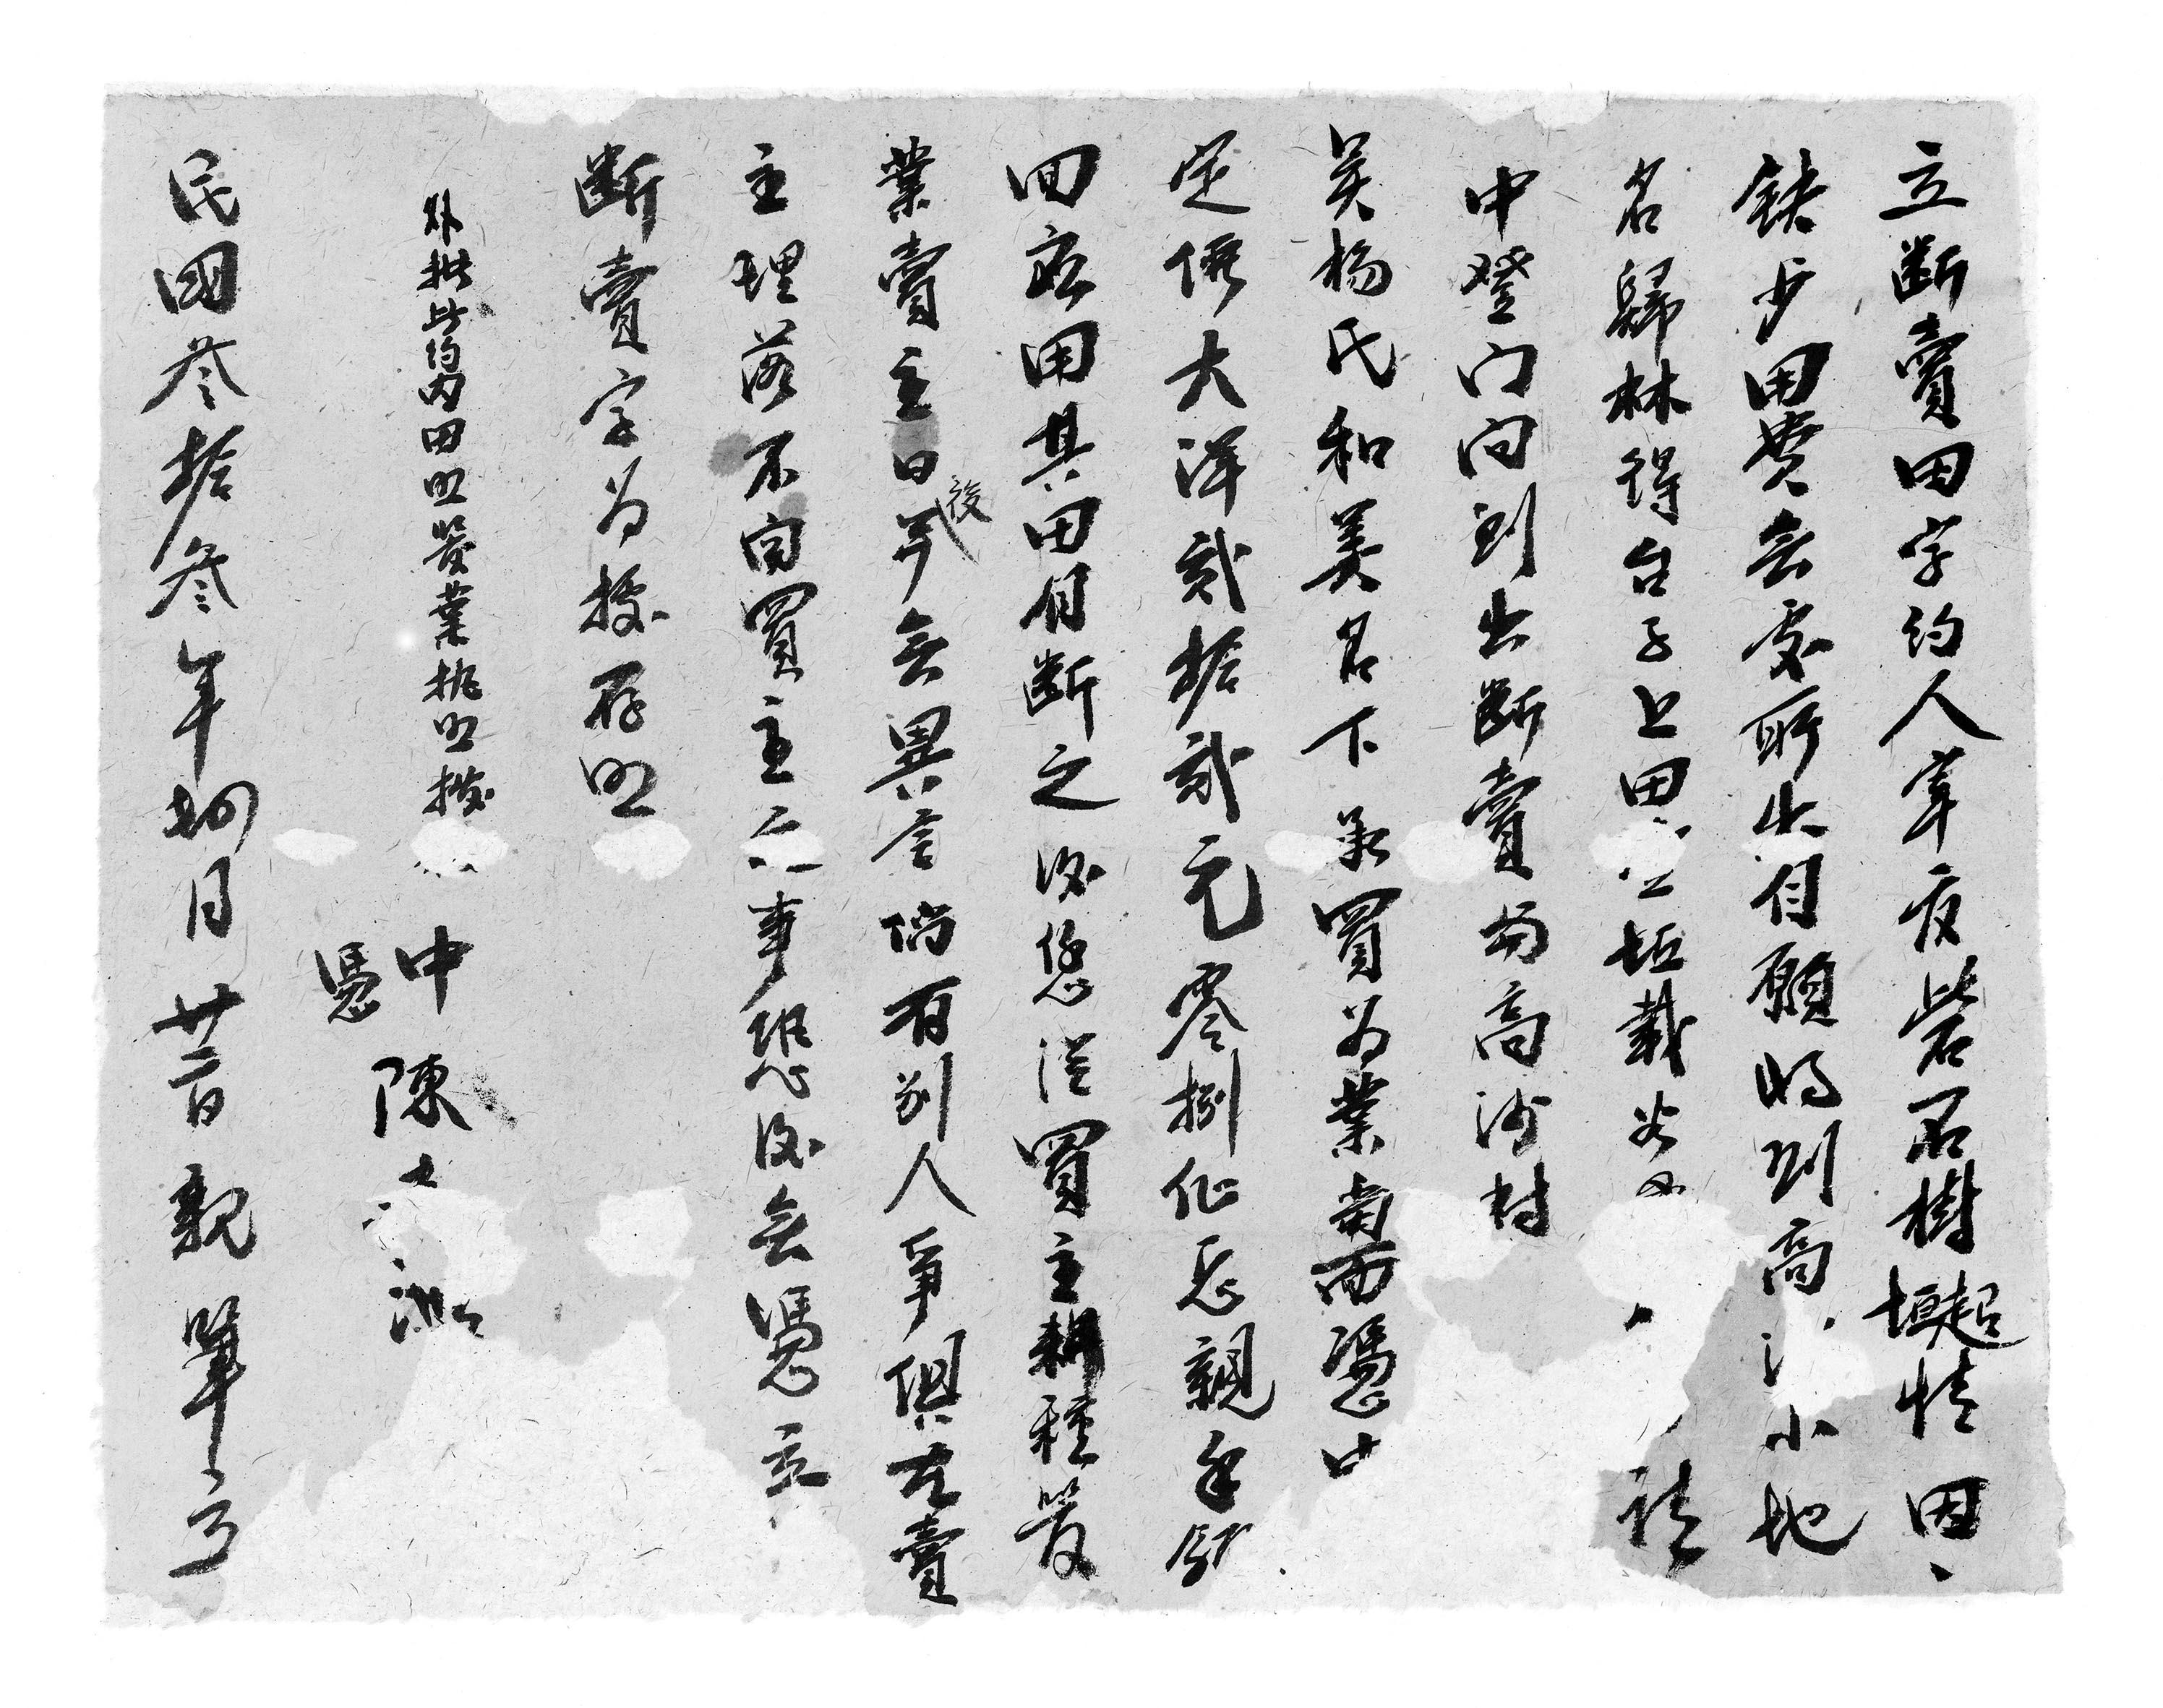 立断賣田字約人宰夜砦石樹垣起情因
缺少田費無處所出自願將到高小地
名歸林得台子上田垣載谷請
中登门问到出断賣与高沙村
吴楊氏和美名下承買為業當面憑中
定價大洋貳拾貳元零捌仙正親手領
回應用其田自断之後任從買主耕種管
業賣主日後無異言倘有別人爭俱在賣
主理落不向買主之事恐後無憑立
断賣字为據存照
外批此約内田照管業執照據
中陳
憑
民國叁拾叁年初月廿二日親筆立